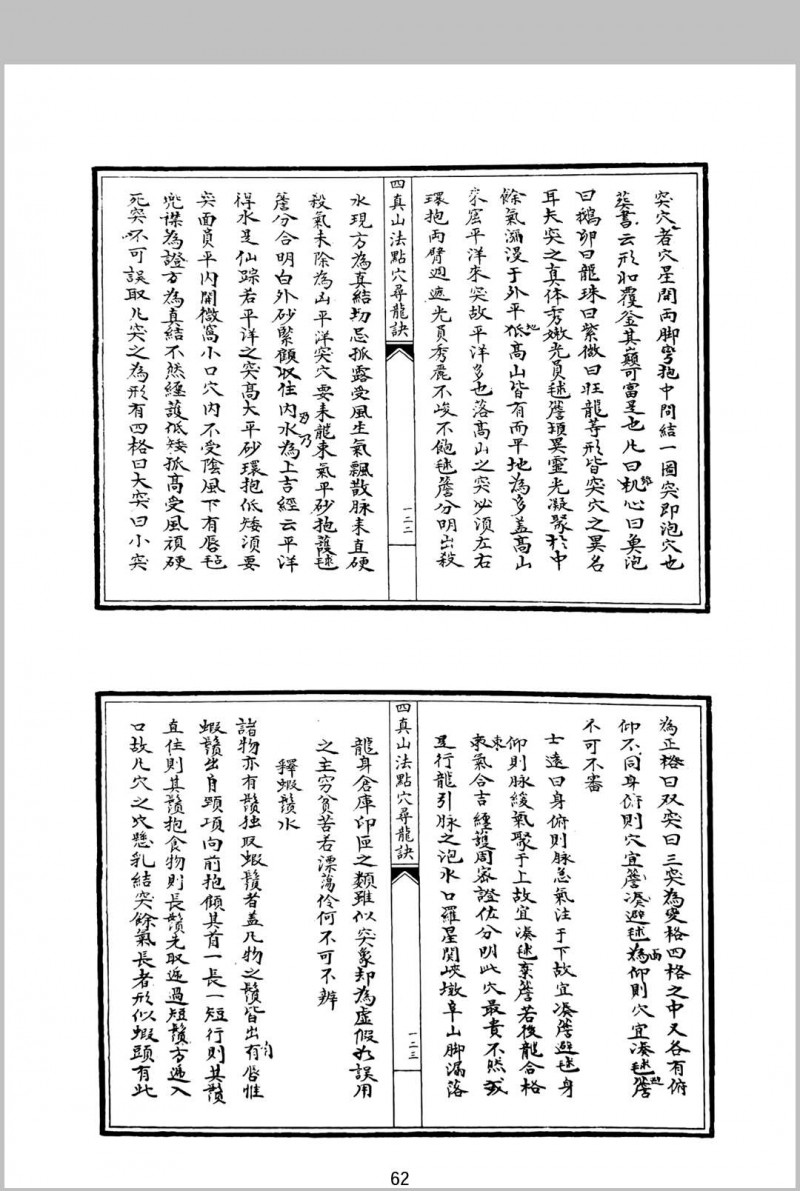 突穴者穴星開兩脚弯抱中間結一圈突即泡穴也
葬書云形如覆釜其巔可富是也凡曰机心曰魚泡
曰鵝卵曰龍珠曰紫微曰旺龍等形皆突穴之異名
耳夫突之真体秀嫩光員毬簷頊異靈光凝聚於中
餘氣漏漫于外平地低高山皆有而平地為多盖高山
來窟平洋來突故平洋多也落高山之突必湏左右
環抱两臂週遮光員秀麗不峻不飽毬簷分明出殺
四真山法點穴尋龍訣
一二二
水現方為真結切忌孤露受風生氣飄散脉来直硬
殺氣未除為凶平洋突穴要来龍束氣平砂抱護毬
簷分合明白外砂緊顧收住内水乃為上吉經云平洋
得水是仙踪若平洋之突高大平砂環抱低矮湏要
突面員平内開微窩小口穴内不受陰風下有唇毡
兜襟為證方為真結不然纏護低矮孤髙受風頑硬
死突不可誤取凡突之為形有四格曰大突曰小突
為正格曰双突曰三突為变格四格之中又各有俯
仰不同身俯則穴宜簷湊避毬而為仰則穴宜湊毬避簷
不可不審
士遠曰身俯則脉急氣注于下故宜湊簷避毬身
仰則脉緩氣聚于上故宜湊毬棄簷若後龍合格
束氣合吉纏護周密證佐分明此穴最貴不然或
是行龍引脉之泡水口羅星関峽墩阜山脚漏落
四真山法點穴尋龍訣
一二三
龍身倉庫印匣之類雖似突象却為虚假如誤用
之主穷貧苦若漂蕩伶何不可不辨
釋蝦鬚水
諸物亦有鬚独取蝦鬚者盖凡物之鬚皆出自唇惟
蝦鬚出自頸項向前抱傾其首一長一短行則其鬚
直住則其鬚抱食物則長鬚先取逓過短鬚方逓入
口故凡穴之穴懸乳結突餘氣長者形似蝦頭有此
62